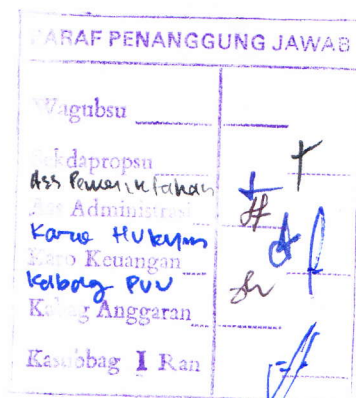 PARAF PENANGGUNG JAWAB
Wagubsu
Sekdapropsu
Ass Pemerintahan
Ass Administrasi
Karo Hukum
Karo Keuangan
Kabag PUU
Kabag Anggaran
Kasubbag I Ran